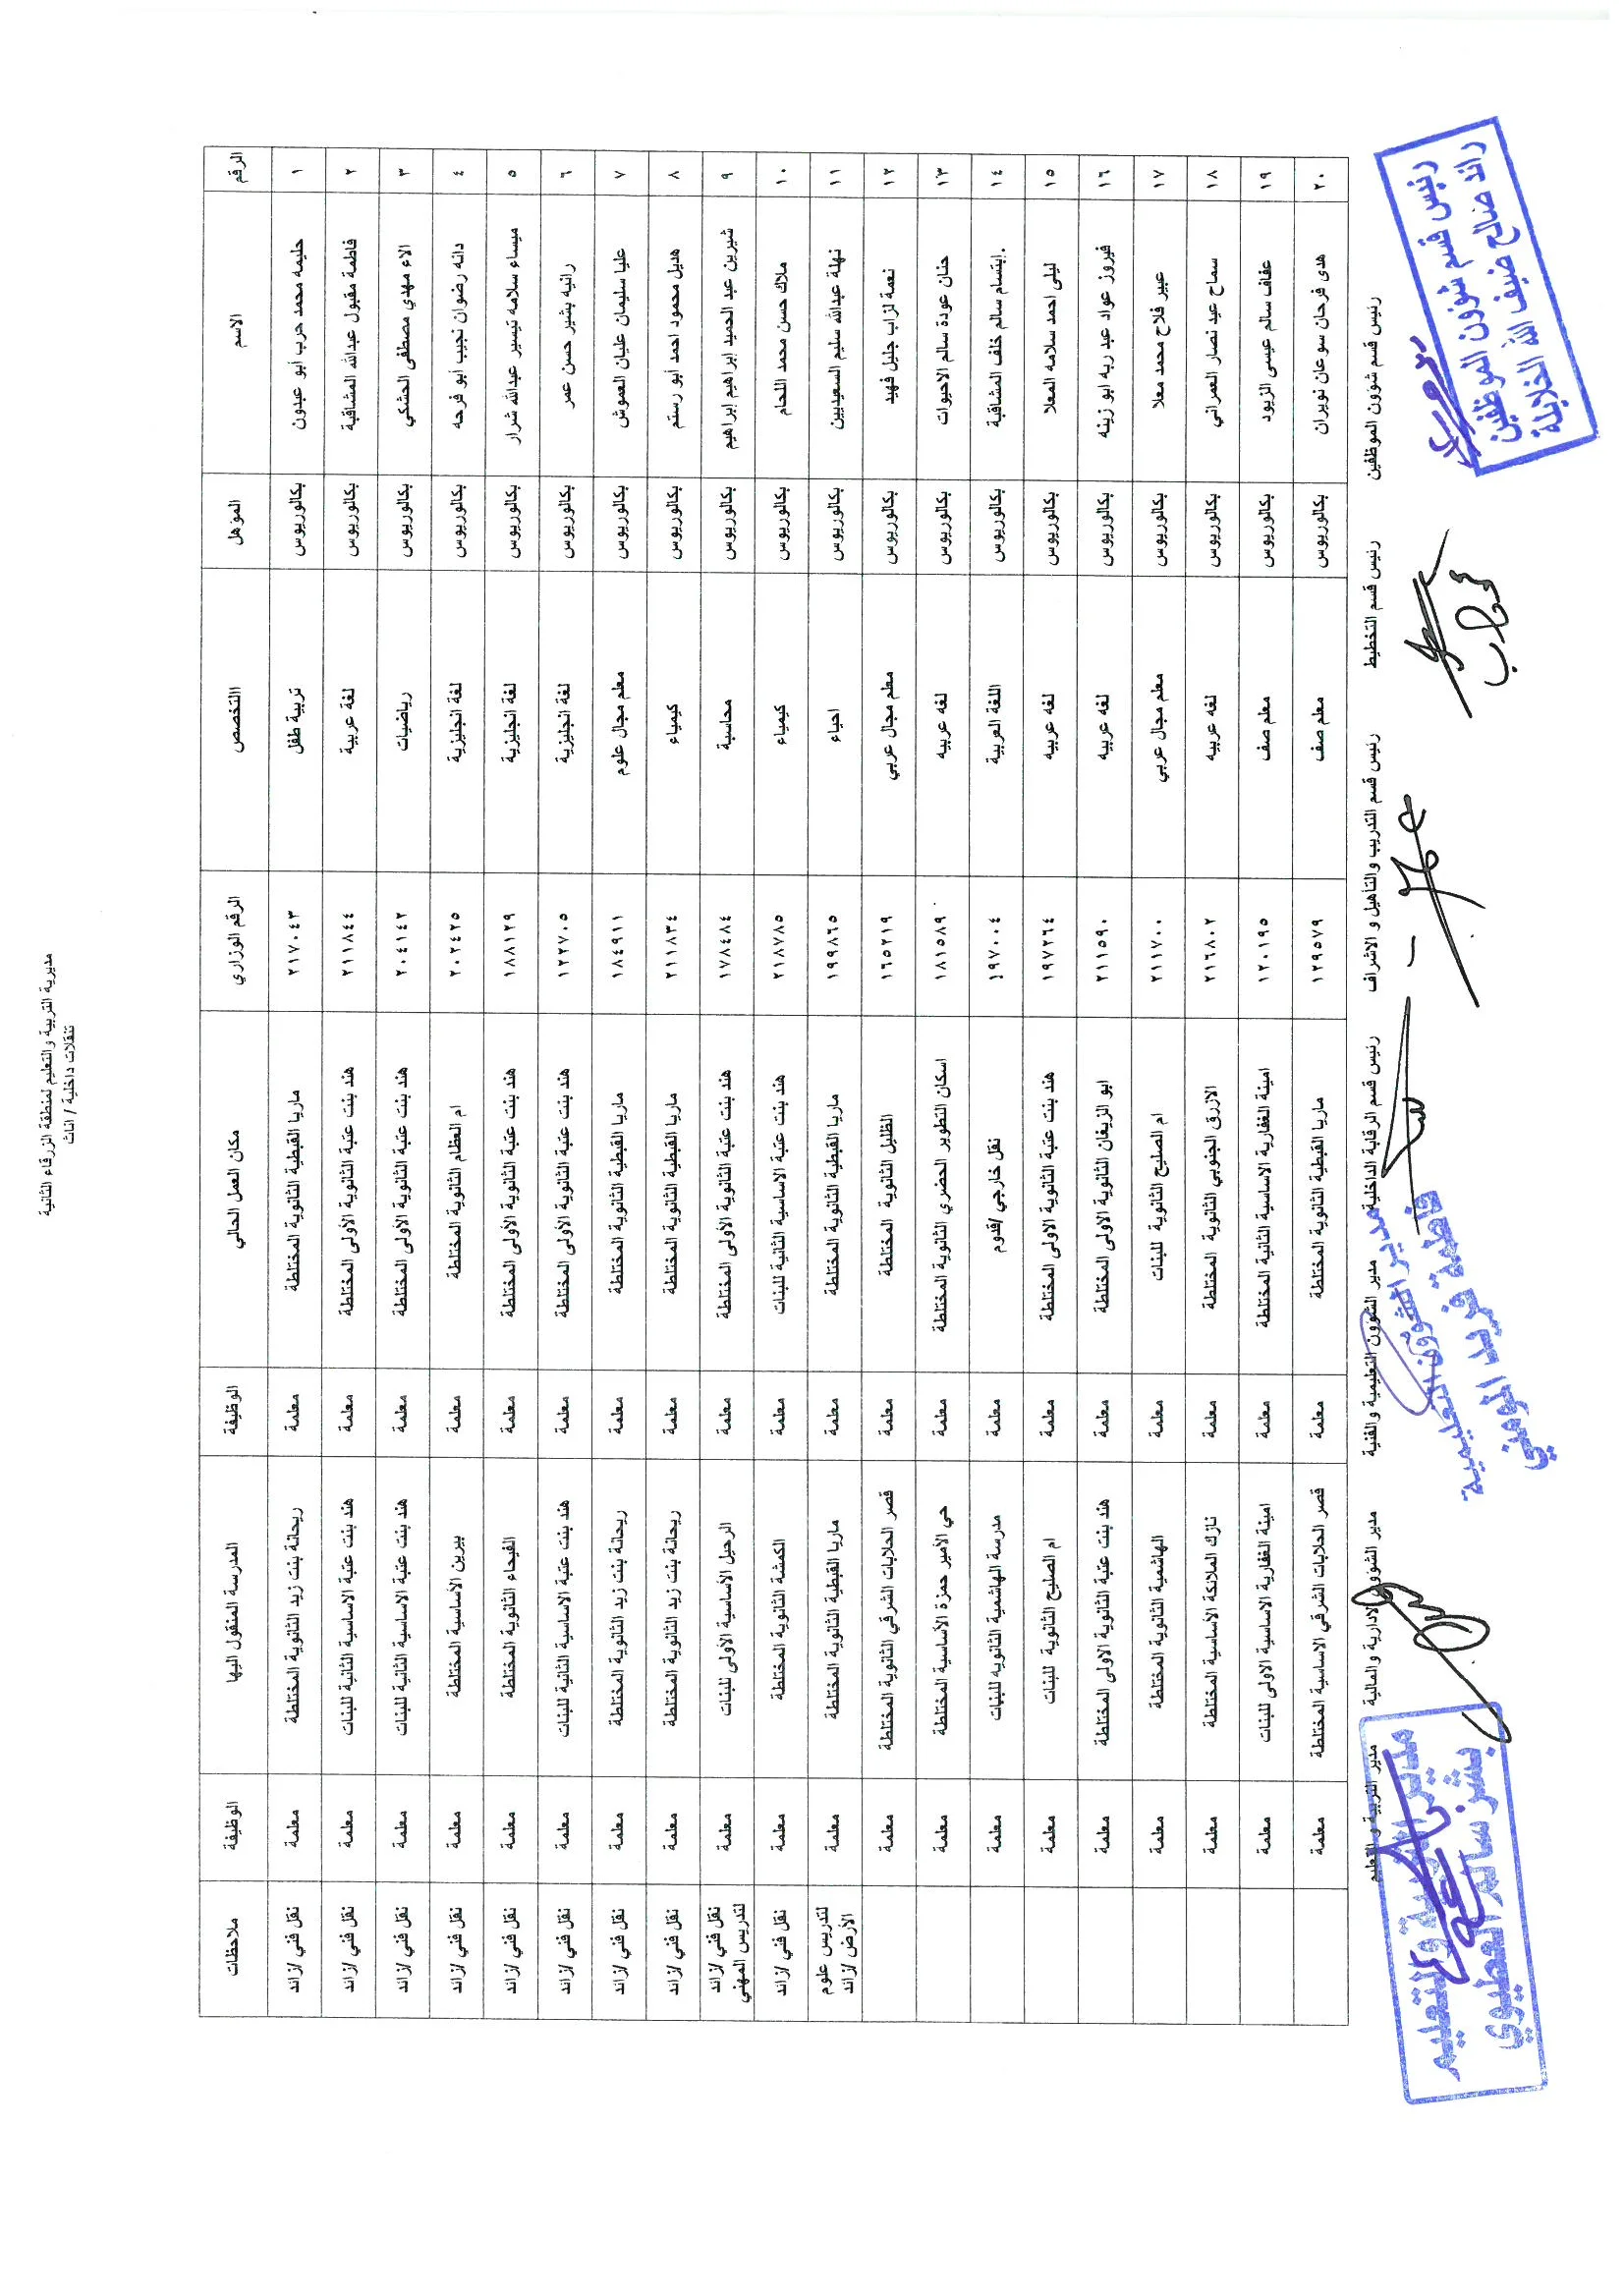 مديرية التربية والتعليم لمنطقة الزرقاء الثانية
تنقلات داخلية / اناث
الرقم الاسم المؤهل التخصص الرقم الوزاري مكان العمل الحالي الوظيفة المدرسة المنقول اليها الوظيفة ملاحظات
١ حليمه محمد حرب أبو عبدون بكالوريوس تربية طفل ٢١٧٠٤٣ ماريا القبطية الثانوية المختلطة معلمة ريحانة بنت زيد الثانوية المختلطة معلمة نقل فني /زائد
٢ فاطمة مقبول عبدالله المشاقبة بكالوريوس لغة عربية ٢١١٨٤٤ هند بنت عتبة الثانوية الأولى المختلطة معلمة هند بنت عتبة الاساسية الثانية للبنات معلمة نقل فني /زائد
٣ الاء مهدي مصطفى الحشكي بكالوريوس رياضيات ٢٠٤١٤٢ هند بنت عتبة الثانوية الأولى المختلطة معلمة هند بنت عتبة الاساسية الثانية للبنات معلمة نقل فني /زائد
٤ دانه رضوان نجيب أبو فرحه بكالوريوس لغة انجليزية ٢٠٢٤٢٥ ام العظام الثانوية المختلطة معلمة بيرين الأساسية المختلطة معلمة نقل فني /زائد
٥ ميساء سلامه تيسير عبدالله شرار بكالوريوس لغة انجليزية ١٨٨١٢٩ هند بنت عتبة الثانوية الأولى المختلطة معلمة الفيحاء الثانوية المختلطة معلمة نقل فني /زائد
٦ رانيه بشير حسن عمر بكالوريوس لغة انجليزية ١٢٢٧٠٥ هند بنت عتبة الثانوية الأولى المختلطة معلمة هند بنت عتبة الاساسية الثانية للبنات معلمة نقل فني /زائد
٧ عليا سليمان عليان العموش بكالوريوس معلم مجال علوم ١٨٤٩١١ ماريا القبطية الثانوية المختلطة معلمة ريحانة بنت زيد الثانوية المختلطة معلمة نقل فني /زائد
٨ هديل محمود احمد أبو رستم بكالوريوس كيمياء ٢١١٨٣٤ ماريا القبطية الثانوية المختلطة معلمة ريحانة بنت زيد الثانوية المختلطة معلمة نقل فني /زائد
٩ شيرين عبد الحميد ابراهيم ابراهيم بكالوريوس محاسبة ١٧٨٤٨٤ هند بنت عتبة الثانوية الأولى المختلطة معلمة الرحيل الأساسية الأولى للبنات معلمة نقل فني /زائد
لتدريس المهني
١٠ ملاك حسن محمد اللحام بكالوريوس كيمياء ٢١٨٧٨٥ هند بنت عتبة الاساسية الثانية للبنات معلمة الكمشة الثانوية المختلطة معلمة نقل فني /زائد
١١ نهلة عبدالله سليم السعيديين بكالوريوس احياء ١٩٩٨٦٥ ماريا القبطية الثانوية المختلطة معلمة ماريا القبطية الثانوية المختلطة معلمة لتدريس علوم
الأرض /زائد
١٢ نعمة لزاب جليل فهيد بكالوريوس معلم مجال عربي ١٦٥٢١٩ الظليل الثانوية المختلطة معلمة قصر الحلابات الشرقي الثانوية المختلطة معلمة
١٣ حنان عودة سالم الاحيوات بكالوريوس لغه عربيه ١٨١٥٨٩ اسكان التطوير الحضري الثانوية المختلطة معلمة حي الأمير حمزة الأساسية المختلطة معلمة
١٤ ابتسام سالم خلف المشاقبة بكالوريوس اللغة العربية ١٩٧٠٠٤ نقل خارجي /قدوم معلمة مدرسة الهاشمية الثانويه للبنات معلمة
١٥ ليلى احمد سلامه المعلا بكالوريوس لغه عربيه ١٩٧٢٦٤ هند بنت عتبة الثانوية الاولى المختلطة معلمة ام الصليح الثانوية للبنات معلمة
١٦ فيروز عواد عبد ربه ابو زينه بكالوريوس لغه عربيه ٢١١٥٩٠ ابو الزيغان الثانوية الاولى المختلطة معلمة هند بنت عتبة الثانوية الاولى المختلطة معلمة
١٧ عبير فلاح محمد معلا بكالوريوس معلم مجال عربي ٢١١٧٠٠ ام الصليح الثانوية للبنات معلمة الهاشمية الثانوية المختلطة معلمة
١٨ سماح عيد نصار العمراني بكالوريوس لغه عربيه ٢١٦٨٠٢ الازرق الجنوبي الثانوية المختلطة معلمة نازك الملائكة الأساسية المختلطة معلمة
١٩ عفاف سالم عيسى الزيود بكالوريوس معلم صف ١٢٠١٩٥ امينة الغفارية الاساسية الثانية المختلطة معلمة امينة الغفارية الاساسية الاولى للبنات معلمة
٢٠ هدى فرحان سوعان نويران بكالوريوس معلم صف ١٢٩٥٧٩ ماريا القبطية الثانوية المختلطة معلمة قصر الحلابات الشرقي الاساسية المختلطة معلمة
رئيس قسم شؤون الموظفين رئيس قسم التخطيط رئيس قسم التدريب والتاهيل و الاشراف رئيس قسم الرقابة الداخلية مدير الشؤون التعليمية والفنية مدير الشؤون الادارية والمالية مدير التربية و التعليم
رئيس قسم شؤون الموظفين
رائد صالح ضيف الله الخلايلة
مدير الشؤون التعليمية
فاطمة فريد المومني
مدير التربية والتعليم